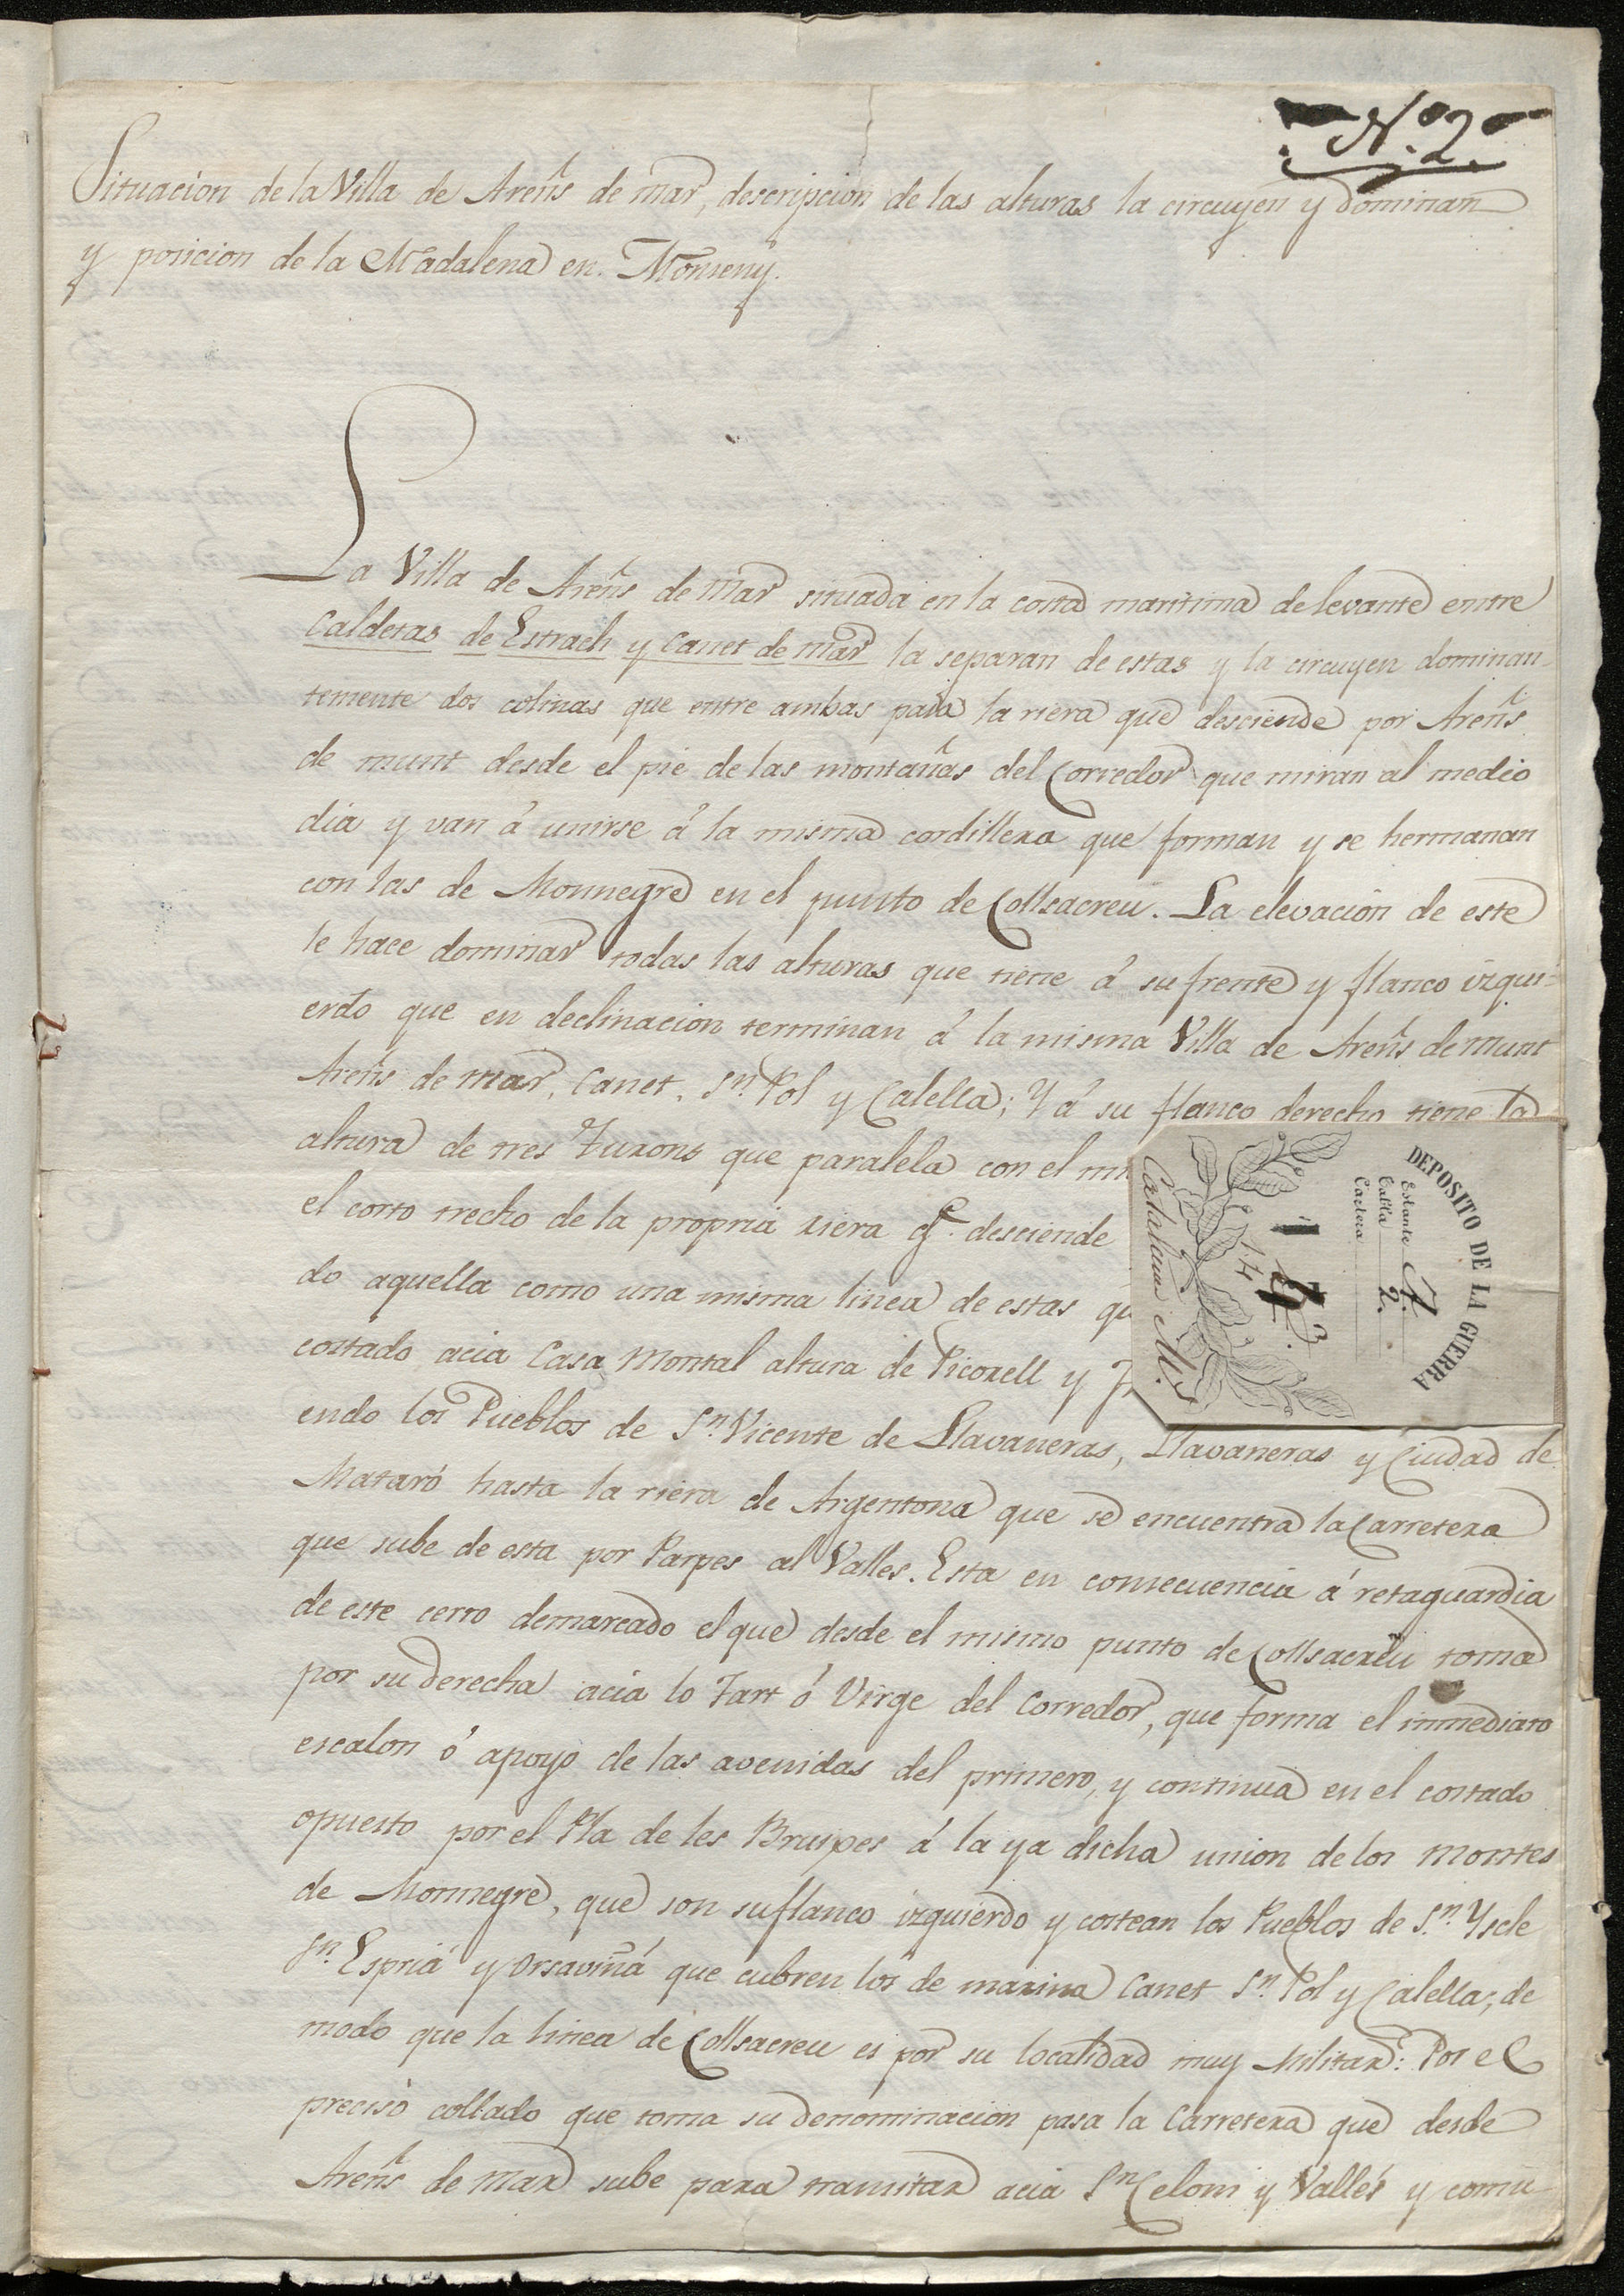 N.º 2.
Situacion de la Villa de Areñs de mar, descripcion de las alturas la circuyen y dominan
y posicion de la Madalena en Monseny.
La Villa de Areñs de Mar situada en la costa maritima de levante entre
Caldetas de Estrach y Canet de mar la separan de estas y la circuyen dominan-
temente dos colinas que entre ambas pasa la riera que desciende por Areñs
de munt desde el pie de las montañas del Corredor que miran al medio
dia y van á unirse á la misma cordillera que forman y se hermanan
con las de Monnegre en el punto de Collsacreu. La elevación de este
le hace dominar todas las alturas que tiene á su frente y flanco izqui-
erdo que en declinacion terminan á la misma Villa de Areñs de Munt
Areñs de mar, Canet, Sn. Pol y Calella; Y á su flanco derecho tiene la
altura de tres Turons que paralela con el
el corto trecho de la propria riera q.e desciende
do aquella como una misma linea de estas
costado acia Casa Montal altura de Picorell y
endo los Pueblos de Sn. Vicente de Llavaneras, Llavaneras y Ciudad de
Mataró hasta la riera de Argentona que se encuentra la Carretera
que sube de esta por Parpes al Valles. Esta en consecuencia á retaguardia
de este cerro demarcado el que desde el mismo punto de Collsacreu toma
por su derecha acia lo Fart ó Virge del Corredor, que forma el inmediato
escalon ó apoyo de las avenidas del primero, y continua en el costado
opuesto por el Pla de les Bruipes á la ya dicha union de los montes
de Monnegre, que son su flanco izquierdo y costean los Pueblos de Sn. Yscle
Sn. Espriá y Orsaviñá que cubren los de marina Canet Sn. Pol y Calella; de
modo que la linea de Collsacreu es por su localidad muy Militar: Por el
preciso collado que toma su denominacion pasa la Carretera que desde
Areñs de Mar sube para transitar acia Sn. Celoni y Vallés y comu-
DEPOSITO DE LA GUERRA
Estante 7.
Tabla 2.
Cartera
Cataluña M.S